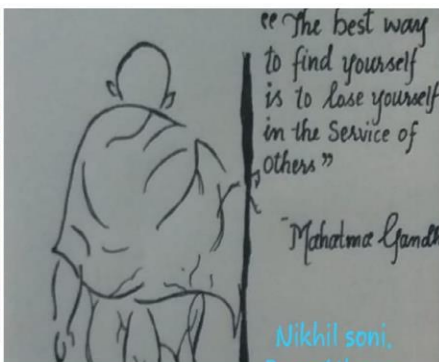 “The best way
to find yourself
is to lose yourself
in the Service of
Others”
Mahatma
Nikhil soni,